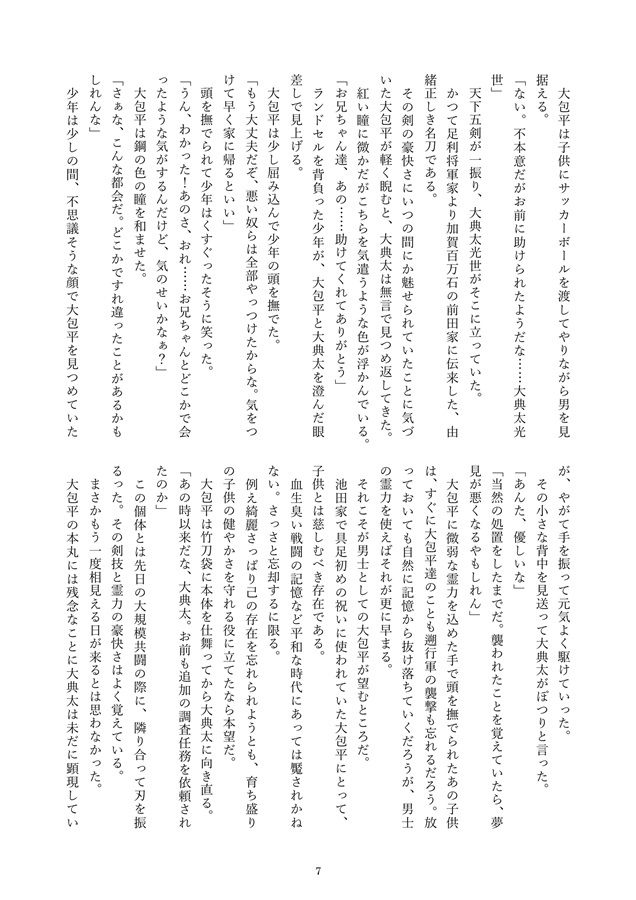 大包平は子供にサッカーボールを渡してやりながら男を見
据える。
「ない。不本意だがお前に助けられたようだな……大典太光
世」
天下五剣が一振り、大典太光世がそこに立っていた。
かつて足利将軍家より加賀百万石の前田家に伝来した、由
緒正しき名刀である。
その剣の豪快さにいつの間にか魅せられていたことに気づ
いた大包平が軽く睨むと、大典太は無言で見つめ返してきた。
紅い瞳に微かだがこちらを気遣うような色が浮かんでいる。
「お兄ちゃん達、あの……助けてくれてありがとう」
ランドセルを背負った少年が、大包平と大典太を澄んだ眼
差しで見上げる。
大包平は少し屈み込んで少年の頭を撫でた。
「もう大丈夫だぞ、悪い奴らは全部やっつけたからな。気をつ
けて早く家に帰るといい」
頭を撫でられて少年はくすぐったそうに笑った。
「うん、わかった!あのさ、おれ……お兄ちゃんとどこかで会
ったような気がするんだけど、気のせいかなぁ?」
大包平は鋼の色の瞳を和ませた。
「さぁな、こんな都会だ。どこかですれ違ったことがあるかも
しれんな」
少年は少しの間、不思議そうな顔で大包平を見つめていた
が、やがて手を振って元気よく駆けていった。
その小さな背中を見送って大典太がぽつりと言った。
「あんた、優しいな」
「当然の処置をしたまでだ。襲われたことを覚えていたら、夢
見が悪くなるやもしれん」
大包平に微弱な霊力を込めた手で頭を撫でられたあの子供
は、すぐに大包平達のことも遡行軍の襲撃も忘れるだろう。放
っておいても自然に記憶から抜け落ちていくだろうが、男士
の霊力を使えばそれが更に早まる。
それこそが男士としての大包平が望むところだ。
池田家で具足初めの祝いに使われていた大包平にとって、
子供とは慈しむべき存在である。
血生臭い戦闘の記憶など平和な時代にあっては魘されかね
ない。さっさと忘却するに限る。
例え綺麗さっぱり己の存在を忘れられようとも、育ち盛り
の子供の健やかさを守れる役に立てたなら本望だ。
大包平は竹刀袋に本体を仕舞ってから大典太に向き直る。
「あの時以来だな、大典太。お前も追加の調査任務を依頼され
たのか」
この個体とは先日の大規模共闘の際に、隣り合って刃を振
るった。その剣技と霊力の豪快さはよく覚えている。
まさかもう一度相見える日が来るとは思わなかった。
大包平の本丸には残念なことに大典太は未だに顕現してい
7